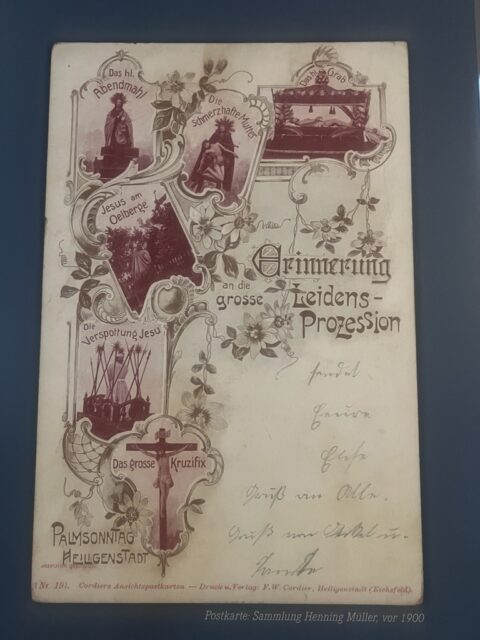 Das hl.
Abendmahl
Die
Schmerzhafte Mutter
Das hl. Grab
Jesus am
Oelberge
Erinnerung
an die
grosse
Leidens-
Prozession
Die
Verspottung Jesu
sendet
Gruß an Alle.
Gruß von Onkel u.
Tante
Das grosse Kruzifix
PALMSONNTAG
HEILIGENSTADT
Nr. 191. Cordiers Ansichtspostkarten — Druck u. Verlag: F. W. Cordier, Heiligenstadt (Eichsfeld).
Postkarte: Sammlung Henning Müller, vor 1900